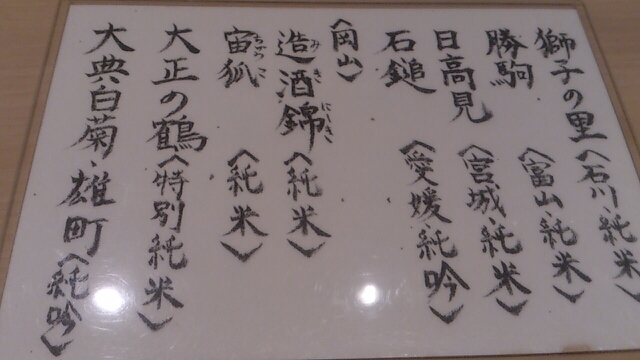 獅子の里〈石川・純米〉
勝駒〈富山・純米〉
日高見〈宮城・純米〉
石鎚〈愛媛・純吟〉
〈岡山〉
造酒錦〈純米〉
みきにしき
宙狐〈純米〉
ちゅうこ
大正の鶴〈特別純米〉
大典白菊・雄町〈純吟〉